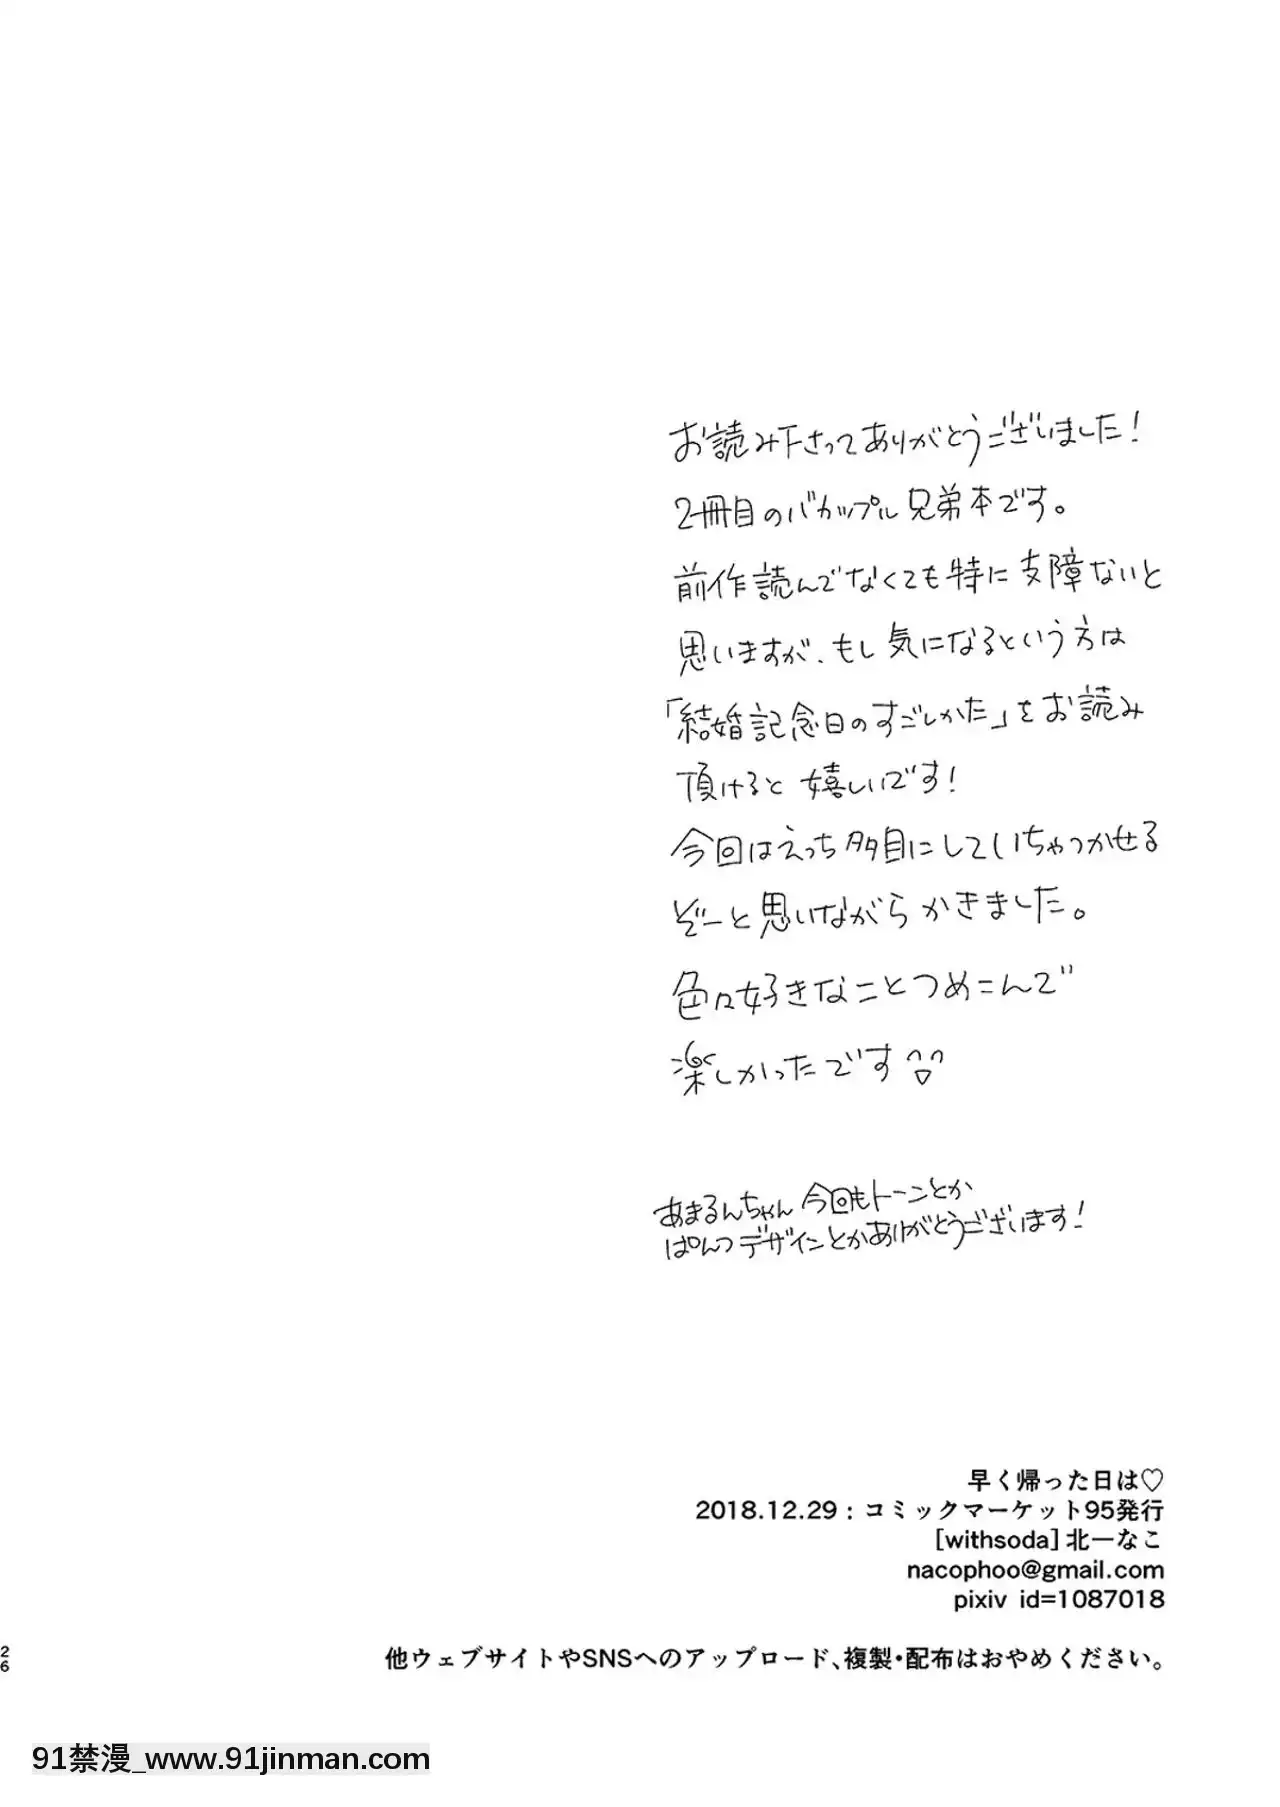 お読み下さってありがとうございました!
2冊目のバカップル兄弟本です。
前作読んでなくても特に支障ないと
思いますが、もし気になるという方は
「結婚記念日のすごしかた」をお読み
頂けると嬉しいです!
今回はえっち多目にしていちゃつかせる
ぞーと思いながらかきました。
色々好きなことつめこんで
楽しかったです
あまるんちゃん今回もトーンとか
ぱんつデザインとかありがとうございます!
早く帰った日は♡
2018.12.29 : コミックマーケット95発行
[withsoda] 北一なこ
nacophoo@gmail.com
pixiv id=1087018
他ウェブサイトやSNSへのアップロード、複製・配布はおやめください。
26
91禁漫_www.91jinman.com